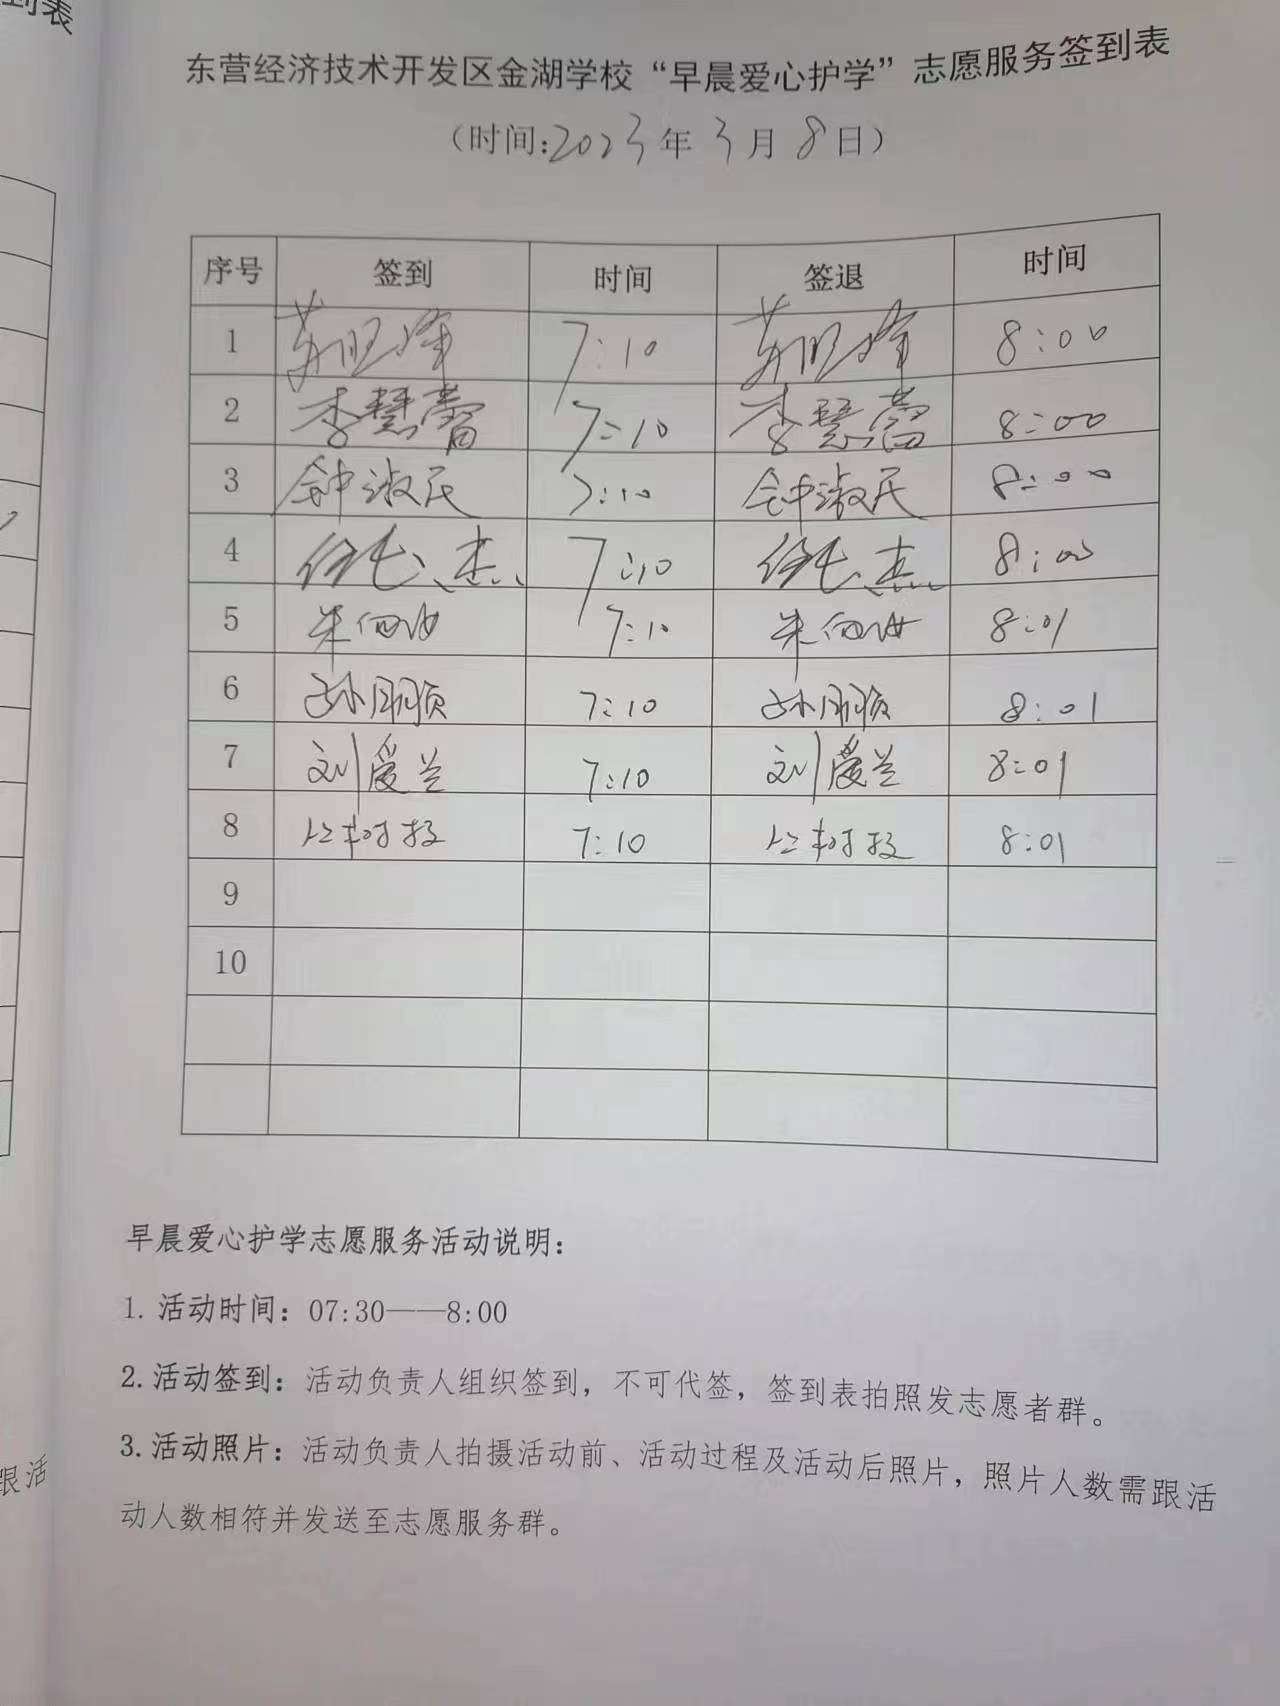 到表
东营经济技术开发区金湖学校“早晨爱心护学”志愿服务签到表
（时间:2023年3月8日）
序号 签到 时间 签退 时间
1 7:10 8:00
2 李慧蕾 7:10 李慧蕾 8:00
3 钟淑民 7:10 钟淑民 8:00
4 7:10 8:00
5 7:10 8:01
6 孙朋顺 7:10 孙朋顺 8:01
7 刘爱兰 7:10 刘爱兰 8:01
8 7:10 8:01
9
10
早晨爱心护学志愿服务活动说明：
1. 活动时间：07:30——8:00
2. 活动签到：活动负责人组织签到，不可代签，签到表拍照发志愿者群。
3. 活动照片：活动负责人拍摄活动前、活动过程及活动后照片，照片人数需跟活
动人数相符并发送至志愿服务群。
跟活